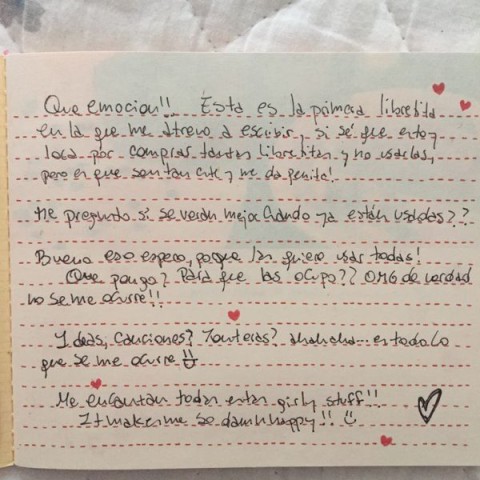 Que emocion!! Esta es la primera libretita
en la que me atrevo a escribir, si sé que estoy
loca por comprar tantas libretitas y no usarlas,
pero es que son tan cute y me da penita!
Me pregunto si se veran mejor cuando ya están usadas??
Bueno eso espero, porque las quiero usar todas!
Que pongo? Para que las ocupo?? OMG de verdad
no se me ocurre!!
Ideas, canciones? Tonteras? ahahaha... es todo lo
que se me ocurre
Me encantan todas estas girly stuff!!
It makes me so damn happy!!